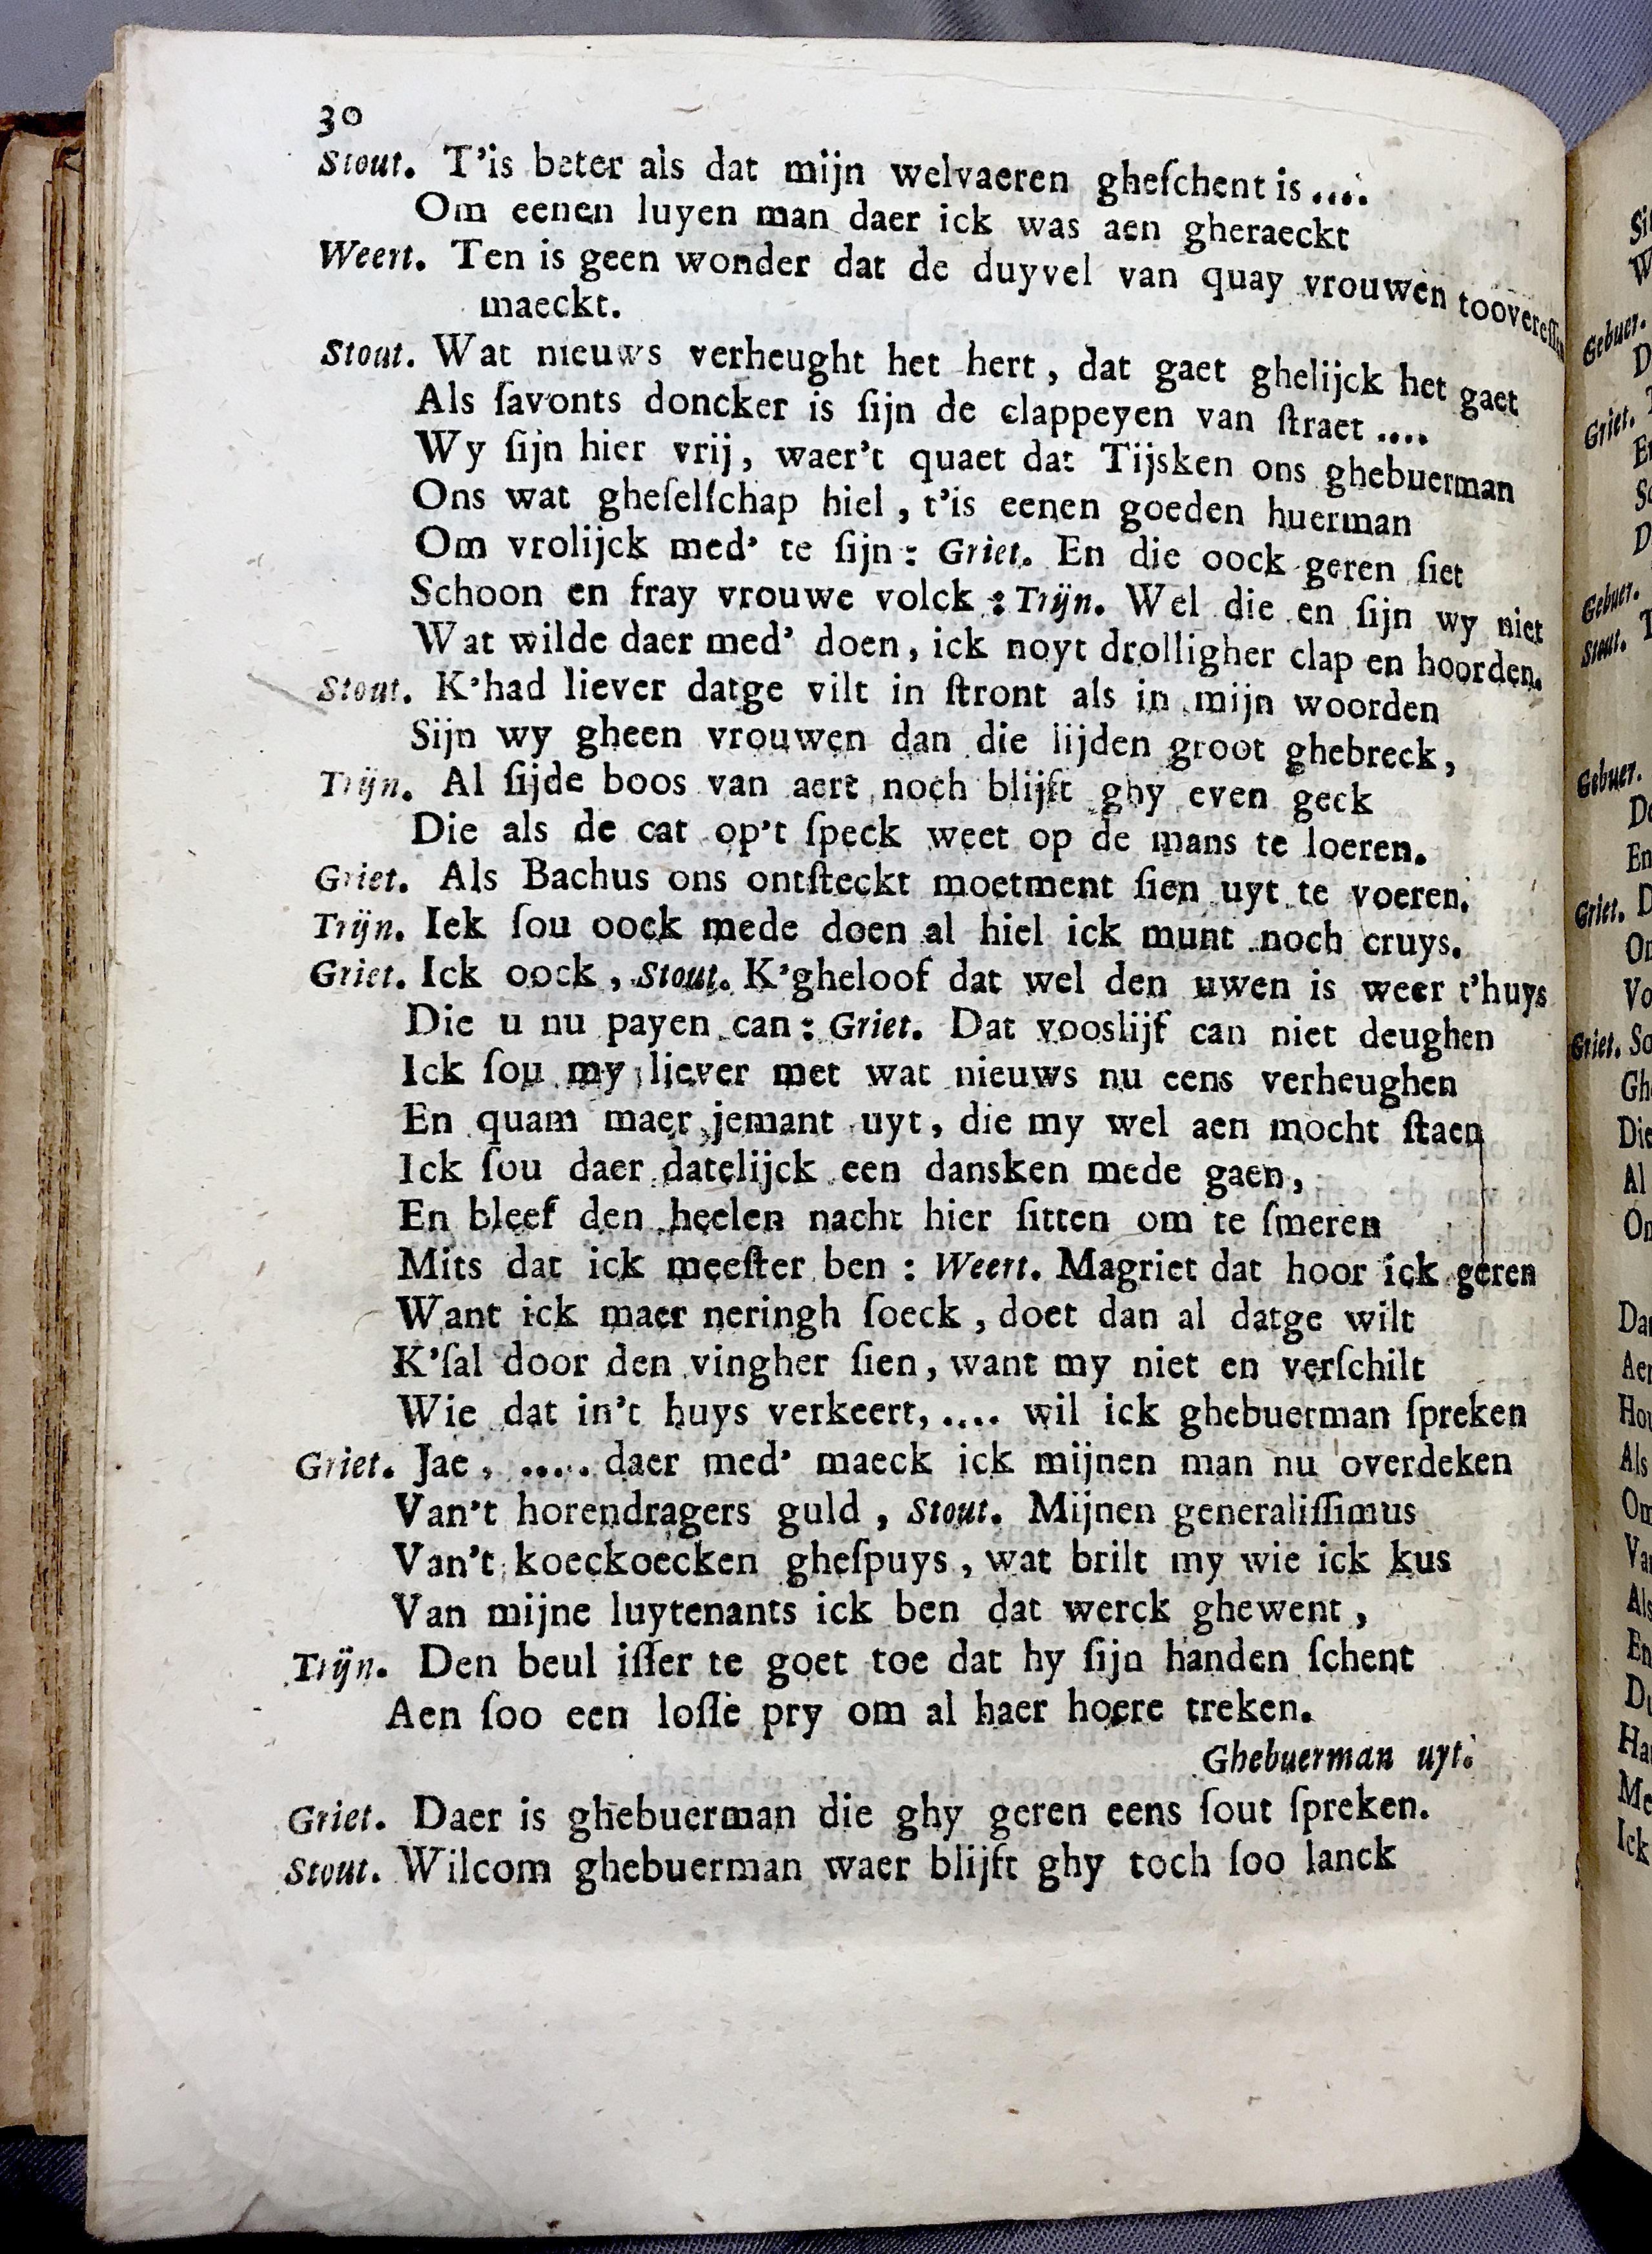 30
Stout. T'is beter als dat mijn welvaeren gheſchent is ....
Om eenen luyen man daer ick was aen gheraeckt
Weert. Ten is geen wonder dat de duyvel van quay vrouwen
maeckt.
Stout. Wat nieuws verheught het hert, dat gaet ghelijck het gaet
Als ſavonts doncker is ſijn de clappeyen van ſtraet ....
Wy ſijn hier vrij, waer't quaet dat Tijsken ons ghebuerman
Ons wat gheſelſchap hiel, t'is eenen goeden huerman
Om vrolijck med' te ſijn: Griet. En die oock geren ſiet
Schoon en fray vrouwe volck: Trijn. Wel die en ſijn wy niet
Wat wilde daer med' doen, ick noyt drolligher clap en hoorden.
Stout. K'had liever datge vilt in ſtront als in mijn woorden
Sijn wy gheen vrouwen dan die lijden groot ghebreck,
Trijn. Al ſijde boos van aert noch blijft ghy even geck
Die als de cat op't ſpeck weet op de mans te loeren.
Griet. Als Bachus ons ontſteckt moetment ſien uyt te voeren.
Trijn. Iek ſou oock mede doen al hiel ick munt noch cruys.
Griet. Ick oock, Stout. K'gheloof dat wel den uwen is weer t'huys
Die u nu payen can: Griet. Dat vooslijf can niet deughen
Ick ſou my liever met wat nieuws nu eens verheughen
En quam maer jemant uyt, die my wel aen mocht ſtaen
Ick ſou daer datelijck een dansken mede gaen,
En bleef den heelen nacht hier ſitten om te ſmeren
Mits dat ick meeſter ben: Weert. Magriet dat hoor ick geren
Want ick maer neringh ſoeck, doet dan al datge wilt
K'ſal door den vingher ſien, want my niet en verſchilt
Wie dat in't huys verkeert, .... wil ick ghebuerman ſpreken
Griet. Jae, ..... daer med' maeck ick mijnen man nu overdeken
Van't horendragers guld, Stout. Mijnen generaliſſimus
Van't koeckoecken gheſpuys, wat brilt my wie ick kus
Van mijne luytenants ick ben dat werck ghewent,
Trijn. Den beul iſſer te goet toe dat hy ſijn handen ſchent
Aen ſoo een loſſe pry om al haer hoere treken.
Ghebuerman uyt.
Griet. Daer is ghebuerman die ghy geren eens ſout ſpreken.
Stout. Wilcom ghebuerman waer blijft ghy toch ſoo lanck
Gebuer.
Griet.
Gebuer.
Stout.
Gebuer.
En
Griet.
Griet. So
Die
Al
Als
Als
En
Ick